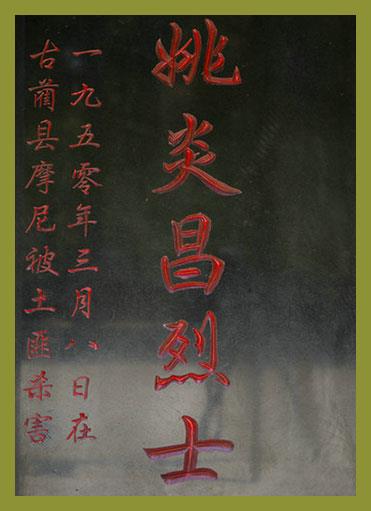 姚炎昌烈士
一九五零年三月八日在
古蔺县摩尼被土匪杀害